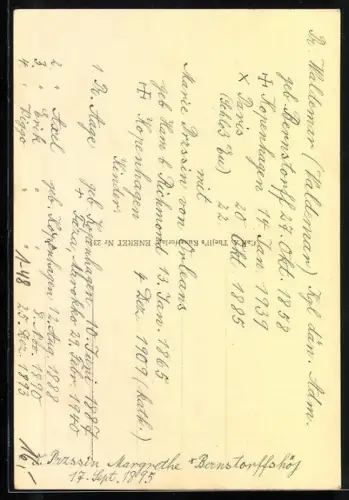 Pr. Waldemar (Valdemar) Kgl. dän. Adm.
geb Bernstorff 27. Okt. 1858
+ Kopenhagen 14 Jan. 1939
x Paris 20 Okt. 1885
(Schloß Eu) 22
mit
Marie Przssin von Orleans
geb Ham b Richmond 13. Jan. 1865
+ Kopenhagen 4 Dez. 1909 (kath.)
Kinder:
1 Pr. Aage geb Kopenhagen 10. Juni 1887
+ Taza, Marokko 29. Febr. 1940
2 " Axel geb. Kopenhagen 12. Aug. 1888
3 " Erik " " 8. Nov. 1890
4. " Viggo " " 25. Dez. 1893
1148
ENERET Nr. 23
Przssin Margrethe * Bernstorffshöj
17. Sept. 1895
16,-